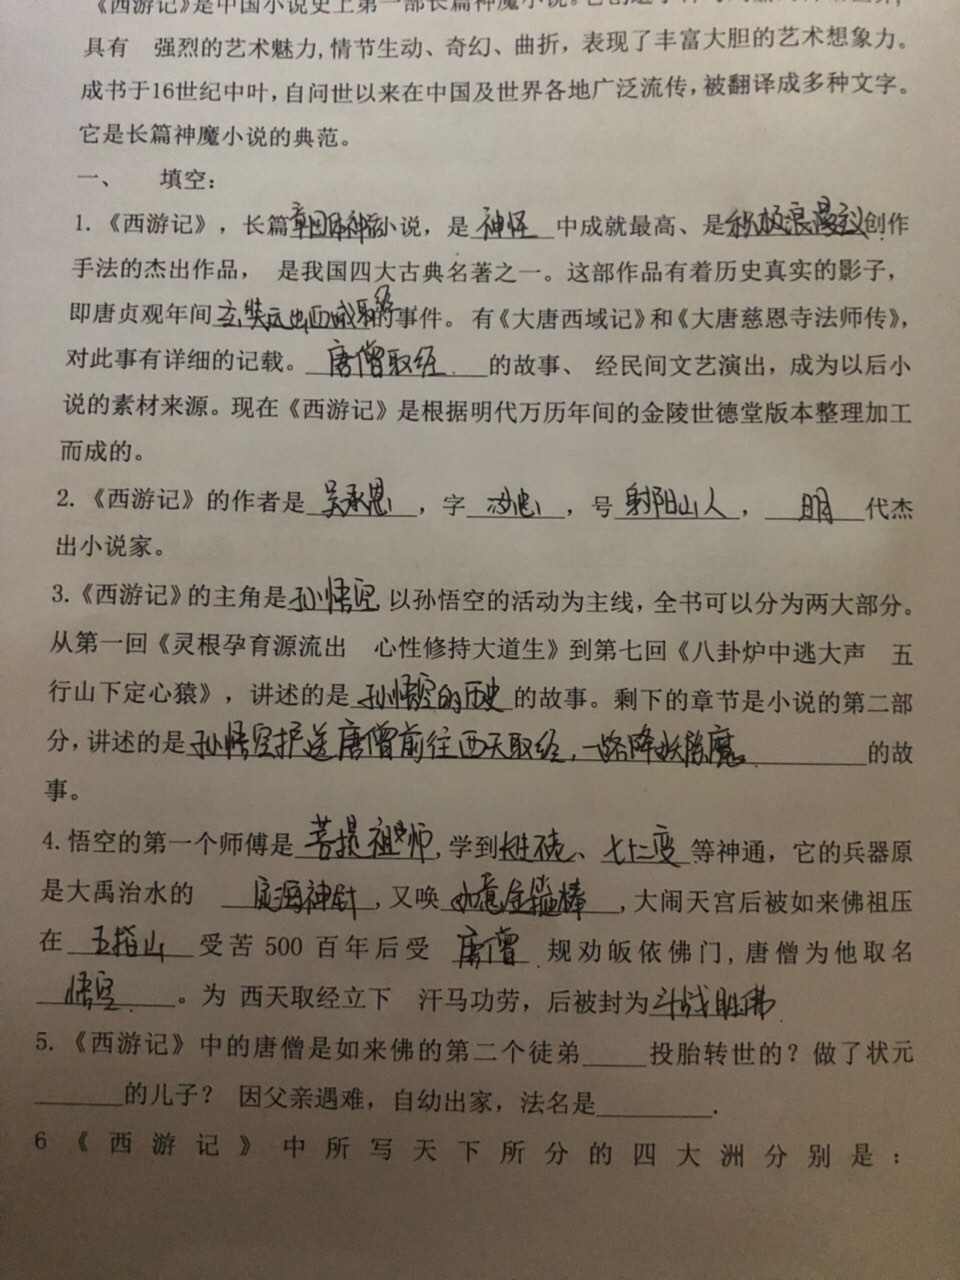 《西游记》是中国小说史上第一部长篇神魔小说。它创造了
具有 强烈的艺术魅力,情节生动、奇幻、曲折，表现了丰富大胆的艺术想象力。
成书于16世纪中叶,自问世以来在中国及世界各地广泛流传,被翻译成多种文字。
它是长篇神魔小说的典范。
一、 填空：
1.《西游记》，长篇章回体神话小说，是 神怪 中成就最高、是积极浪漫主义创作
手法的杰出作品， 是我国四大古典名著之一。这部作品有着历史真实的影子，
即唐贞观年间玄奘远出西域取经的事件。有《大唐西域记》和《大唐慈恩寺法师传》,
对此事有详细的记载。 唐僧取经 的故事、 经民间文艺演出，成为以后小
说的素材来源。现在《西游记》是根据明代万历年间的金陵世德堂版本整理加工
而成的。
2.《西游记》的作者是 吴承恩 ，字 汝忠 ，号 射阳山人 ， 明 代杰
出小说家。
3.《西游记》的主角是孙悟空 以孙悟空的活动为主线，全书可以分为两大部分。
从第一回《灵根孕育源流出 心性修持大道生》到第七回《八卦炉中逃大声 五
行山下定心猿》，讲述的是 孙悟空的历史 的故事。剩下的章节是小说的第二部
分,讲述的是孙悟空护送唐僧前往西天取经，一路降妖除魔。 的故
事。
4.悟空的第一个师傅是 菩提祖师,学到 、七十二变 等神通，它的兵器原
是大禹治水的 定海神针 ,又唤 如意金箍棒 ,大闹天宫后被如来佛祖压
在 五指山 受苦500百年后受 唐僧 规劝皈依佛门,唐僧为他取名
悟空 。为 西天取经立下 汗马功劳，后被封为斗战胜佛
5.《西游记》中的唐僧是如来佛的第二个徒弟_____投胎转世的？做了状元
_______的儿子？ 因父亲遇难，自幼出家，法名是_________.
6《西游记》中所写天下所分的四大洲分别是：